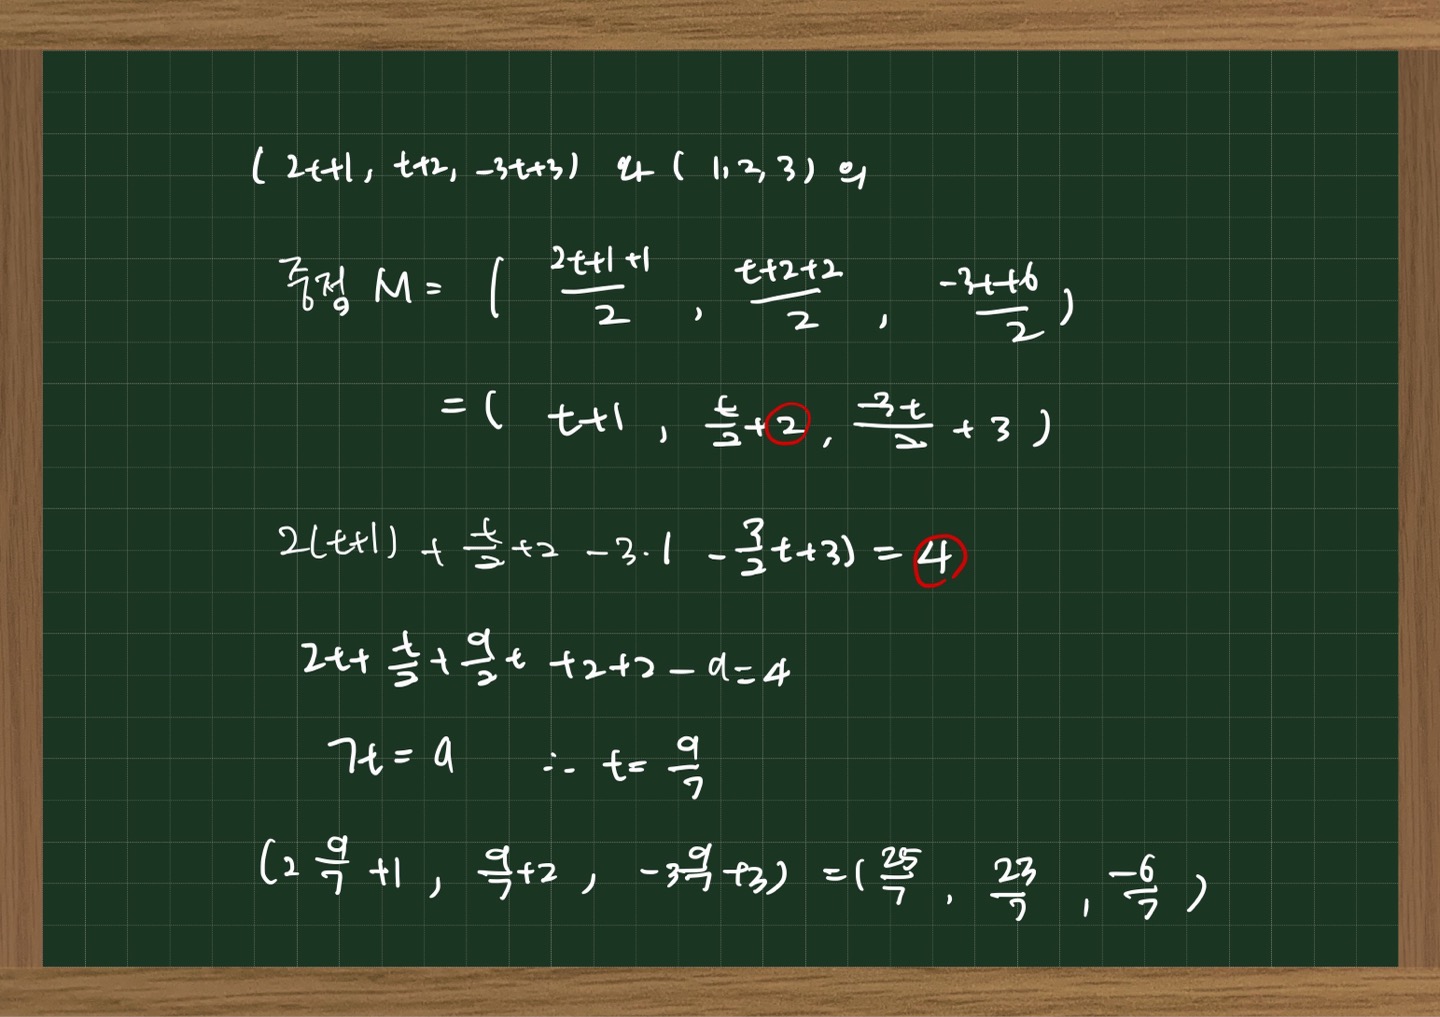 (2t+1, t+2, -3t+3) 와 (1, 2, 3) 의
중점 M = ( \frac{2t+1+1}{2}, \frac{t+2+2}{2}, \frac{-3t+6}{2} )
= ( t+1, \frac{t}{2}+2, \frac{-3t}{2}+3 )
2(t+1) + \frac{t}{2}+2 -3·( -\frac{3}{2}t+3) = 4
2t+ \frac{t}{2} + \frac{9}{2}t +2+2-9=4
7t=9 ∴ t= \frac{9}{7}
(2 \frac{9}{7} +1, \frac{9}{7}+2, -3\frac{9}{7}+3) =( \frac{25}{7}, \frac{23}{7}, \frac{-6}{7} )